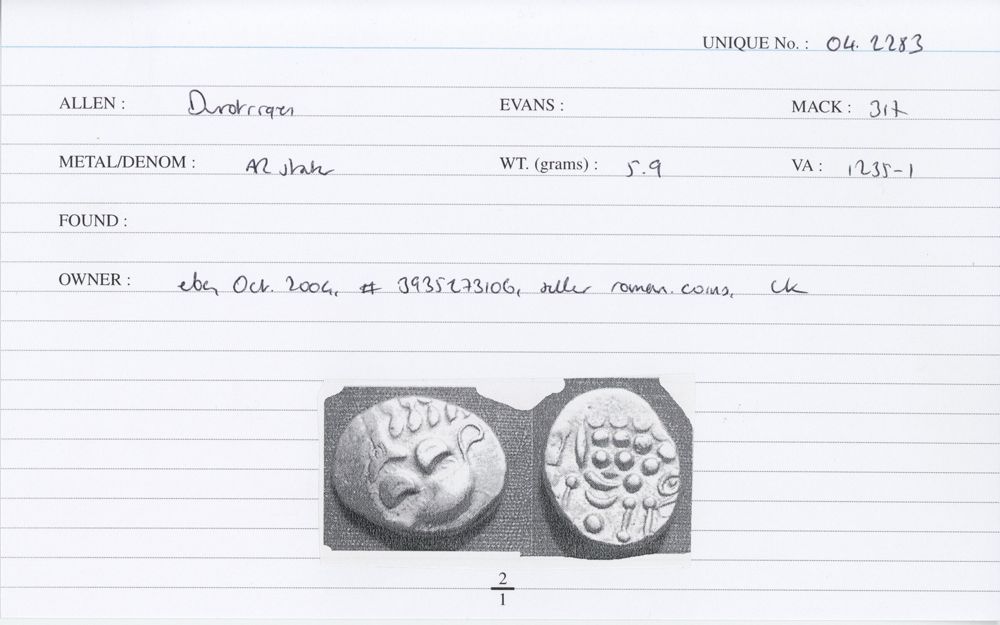 UNIQUE No. : 04. 2283
ALLEN : Durotriges EVANS : MACK : 317
METAL/DENOM : AR stater WT. (grams) : 5.9 VA : 1235-1
FOUND :
OWNER : ebay Oct. 2004, # 3935273106, seller roman.coins, ck
2
1